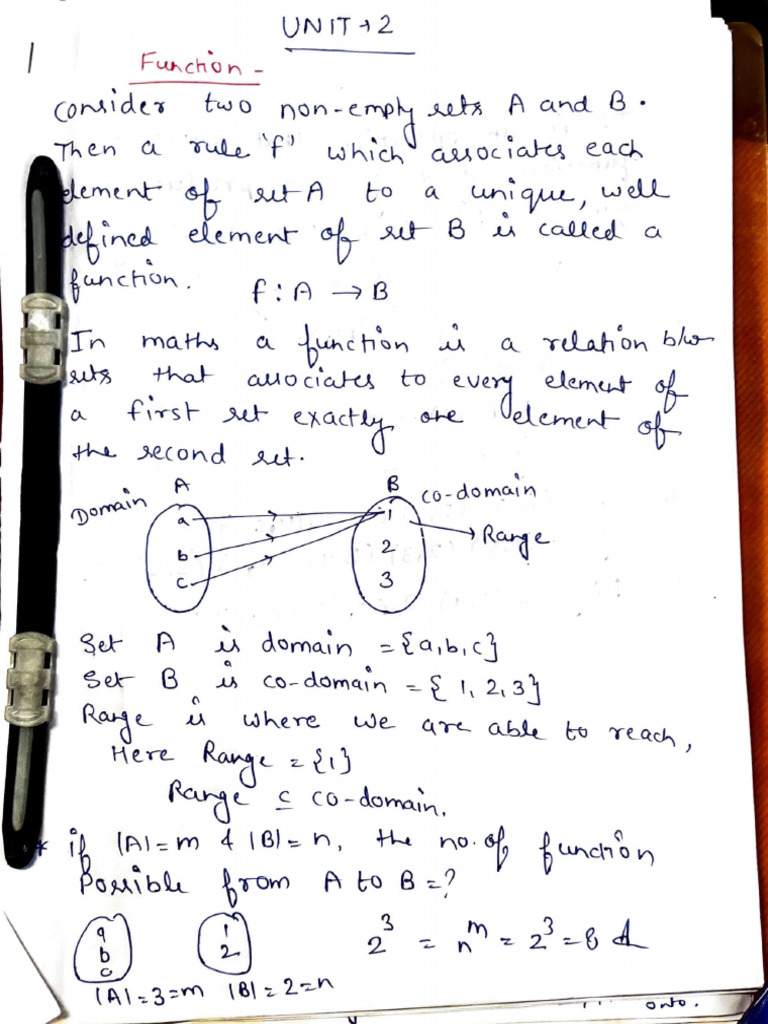 UNIT → 2
Function -
Consider two non-empty sets A and B.
Then a rule 'f' which associates each
element of set A to a unique, well
defined element of set B is called a
function. f : A → B
In maths a function is a relation b/w
sets that associates to every element of
a first set exactly one element of
the second set.
Domain A B co-domain
a 1 Range
b 2
c 3
Set A is domain = {a,b,c}
Set B is co-domain = { 1, 2, 3}
Range is where we are able to reach,
Here Range = {1}
Range ⊆ co-domain.
* if |A| = m & |B| = n, the no. of function
Possible from A to B = ?
a 1
b 2
c
2³ = nᵐ = 2³ = 8
|A| = 3 = m |B| = 2 = n
onto.